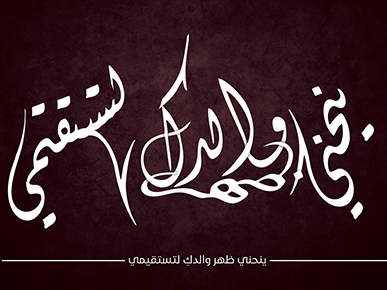 ينحني ظهر والدك لتستقيمي
ينحني ظهر والدكِ لتستقيمي